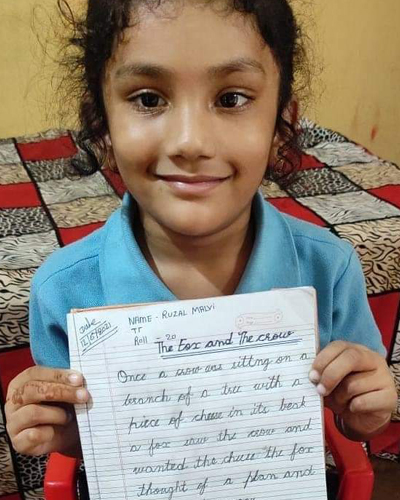 Date
12/6/2021
NAME - RUZAL MALVI
Roll - 20
The Fox and The crow
Once a crow was sitting on a
branch of a tree with a
piece of cheese in its beak
a fox saw the crow and
wanted the the fox
thought of a plan and